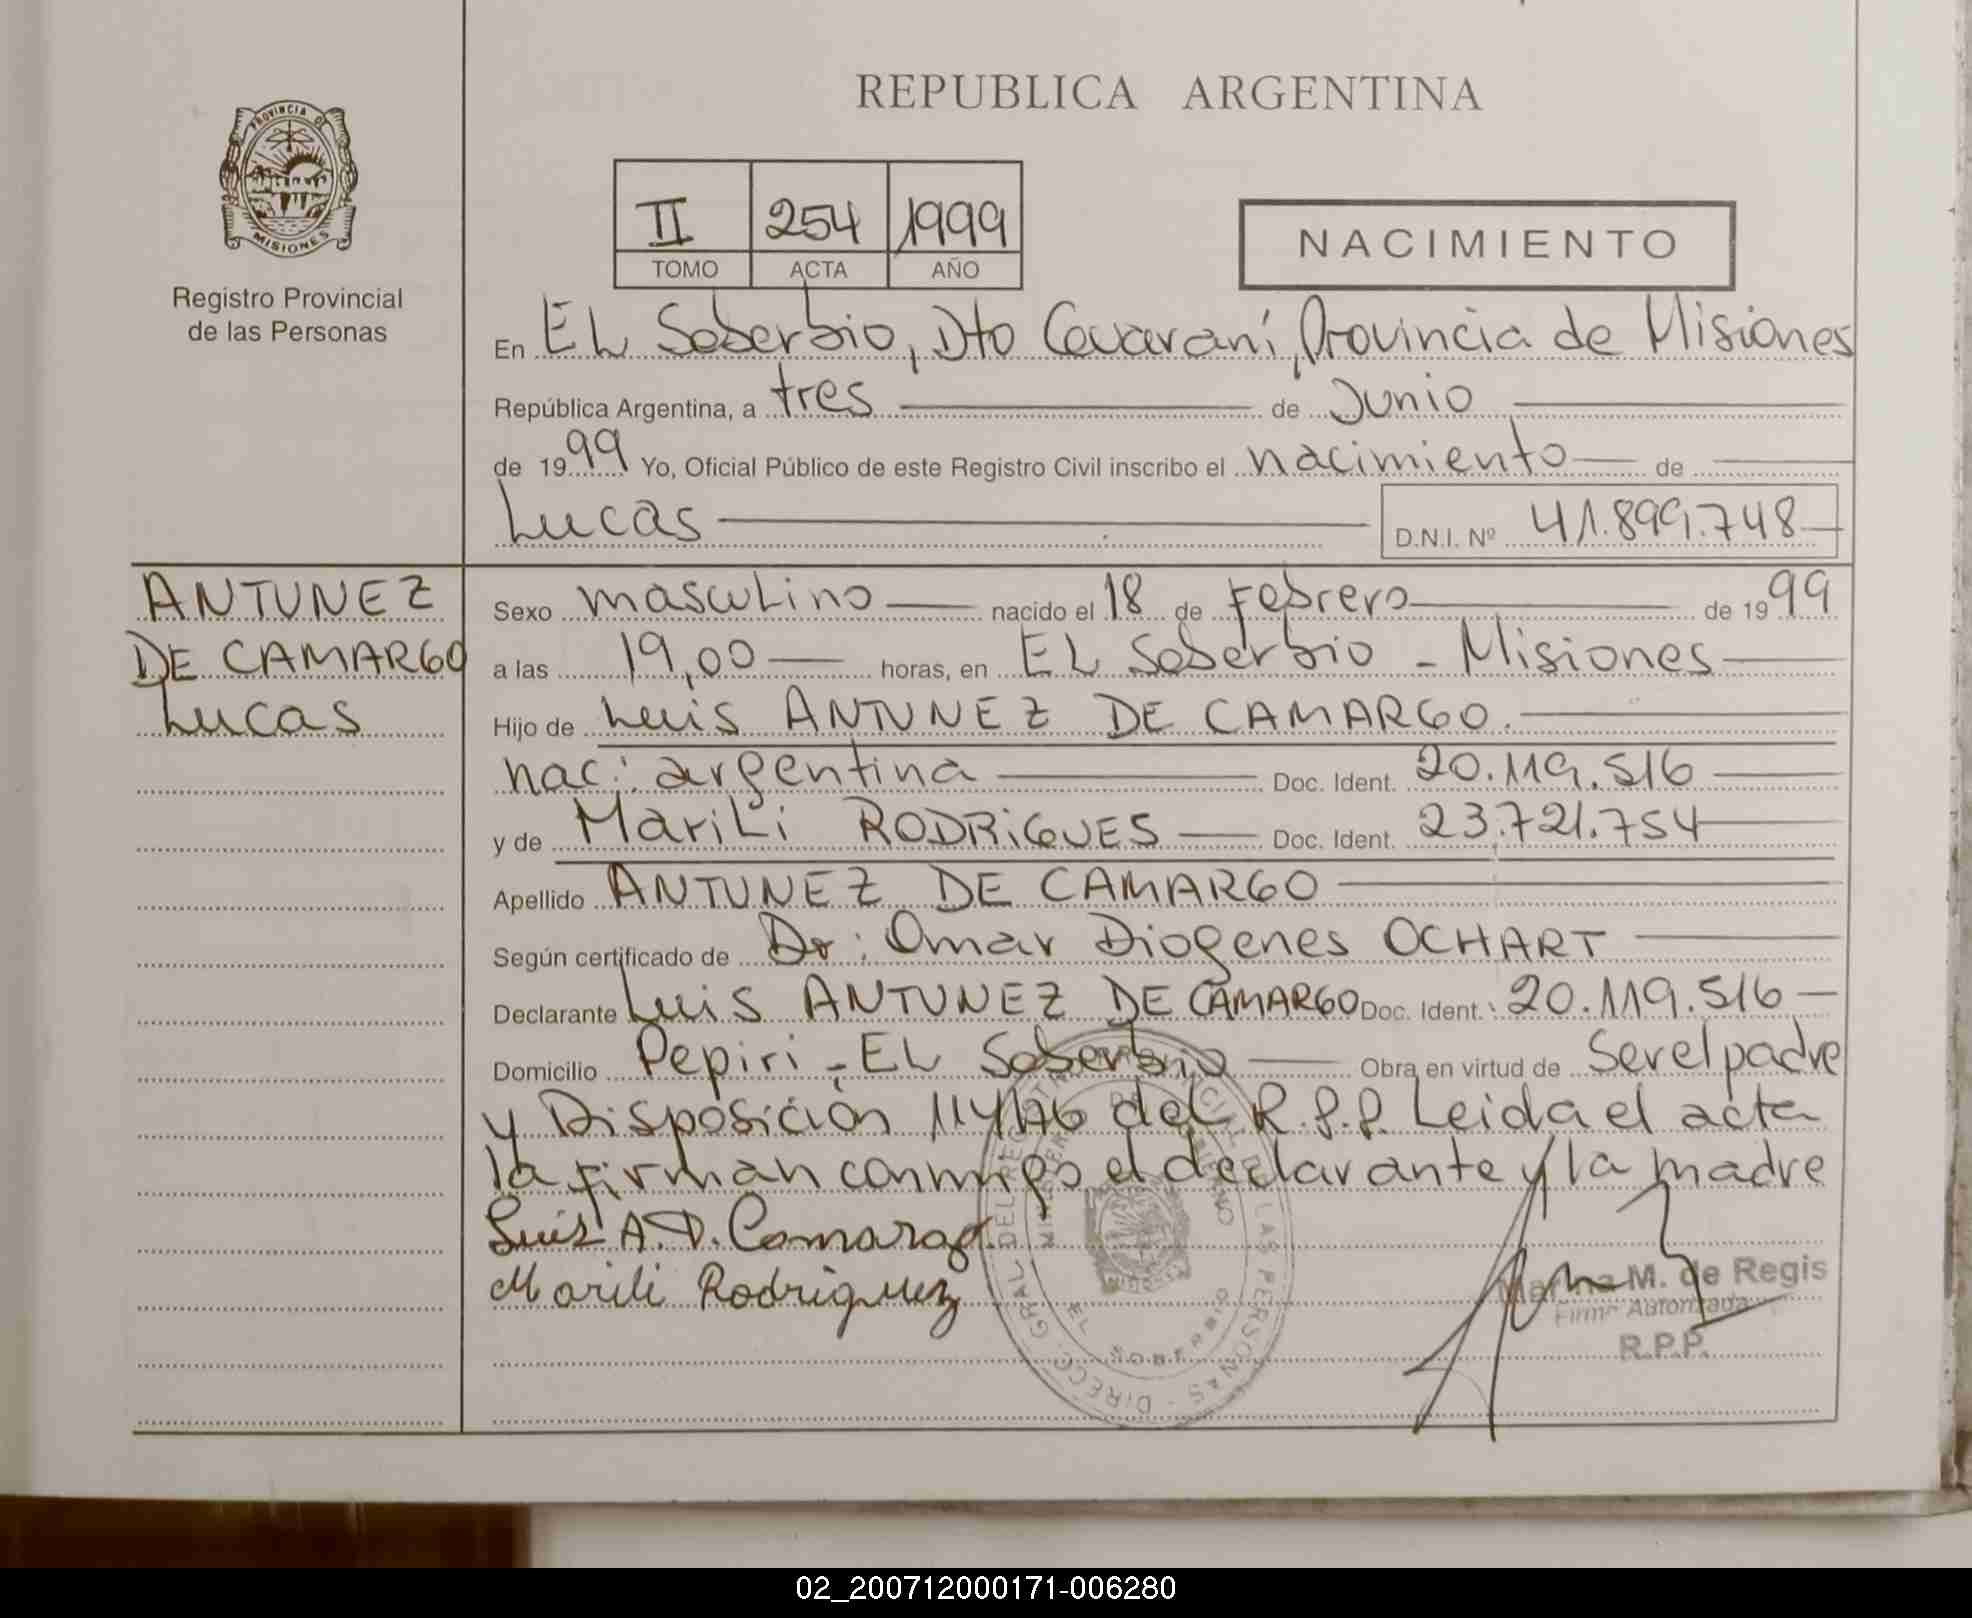 REPUBLICA ARGENTINA
PROVINCIA DE
MISIONES
Registro Provincial
de las Personas
II 254 1999
TOMO ACTA AÑO
NACIMIENTO
En EL Soberbio, Dto Guaraní, Provincia de Misiones
República Argentina, a tres de Junio
de 1999 Yo, Oficial Público de este Registro Civil inscribo el nacimiento de
Lucas D.N.I. Nº 41.899.748
ANTUNEZ
DE CAMARGO
Lucas
Sexo masculino nacido el 18 de Febrero de 1999
a las 19,00 horas, en EL Soberbio - Misiones
Hijo de Luis ANTUNEZ DE CAMARGO.
nac: argentina Doc. Ident. 20.119.516
y de Marili RODRIGUES Doc. Ident. 23.721.754
Apellido ANTUNEZ DE CAMARGO
Según certificado de Dr: Omar Diogenes OCHART
Declarante Luis ANTUNEZ DE CAMARGO Doc. Ident. 20.119.516
Domicilio Pepiri - EL Soberbio Obra en virtud de Ser el padre
y Disposición 114/96 del R.P.P. Leida el acta
la firman conmigo el declarante y la madre
Luis A.D. Camargo
Marili Rodriguez
M. de Regis
Firma Autorizada
R.P.P.
DIRECC. GRAL. DEL REGISTRO PROVINCIAL DE LAS PERSONAS
EL SOBERBIO
02_200712000171-006280